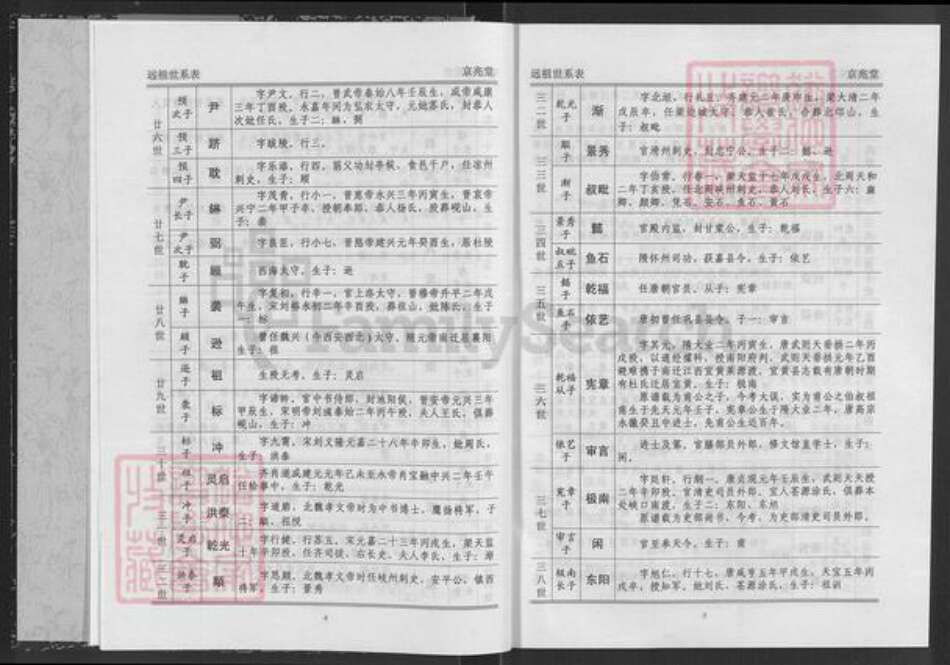 远祖世系表
京兆堂
廿六世
预次子
尹
字尹文，行二，晋武帝泰始八年壬辰生，咸帝咸康
三年丁酉殁，永嘉年间为弘农太守，元妣苏氏，封恭人
次妣任氏，生子二：綝、弼
预三子
跻
行三。
预四子
耽
刺史，生子：顾
廿七世
尹长子
綝
字茂青，行小一，晋愍帝永兴三年丙寅生，晋哀帝
兴宁二年甲子卒，授朝奉郎，恭人杨氏，殁葬岘山，生
子：袭
尹次子
弼
行小七，晋愍帝建兴元年癸酉生，居杜陵
耽子
顾
西海太守，生子：逊
廿八世
綝子
袭
字复初，行辛一，官上洛太守，晋穆帝升平二年戊
午生，宋刘裕永初二年辛酉殁，葬祖山，妣陈氏，生子
一：标
顾子
逊
曾任魏兴（今西安西北）太守，随元帝南迁居襄阳
生子：祖
廿九世
逊子
祖
生殁无考，生子：灵启
袭子
标
官中书侍郎，封池阳侯，晋安帝元兴三年
甲辰生，宋明帝刘彧泰始二年丙午殁，夫人王氏，俱葬
岘山，生子：冲
三十世
标子
冲
字九霄，宋刘义隆元嘉二十八年辛卯生，妣周氏，
生子：洪泰
祖子
灵启
齐肖道成建元元年己未至永帝肖宝融中兴二年壬午
任给事中，生子：乾光
三一世
冲子
洪泰
字道廓，北魏孝文帝时为中书博士，鹰扬将军，子
二：颙、祖悦
灵启子
乾光
字行健，行荐五，宋元嘉二十三年丙戌生，梁天监
十年辛卯殁，任齐司徒、右长史，夫人李氏，生子：渐
三二世
洪泰子
颙
字思颙，北魏孝文帝时任岐州刺史，安平公，镇西
将军，生子：景秀
4
远祖世系表
京兆堂
三二世
乾光子
渐
齐建元二年庚申生，梁大清二年
戊辰卒，任梁边城太守，恭人崔氏，合葬北邙山，生
子：叔毗
三三世
颙子
景秀
官渭州刺史，生子二：懿、逊
渐子
叔毗
字伯常，行奉一，梁天监十七年戊戌生，北周天和
二年丁亥殁，任北周硖州刺史，恭人刘氏，生子六：廉
卿、颜卿、凭石、安石、鱼石、黄石
三四世
景秀子
懿
官殿内监，封甘棠公，生子：乾福
叔毗五子
鱼石
隋怀州司功，获嘉县令，生子：依艺
三五世
懿子
乾福
任唐朝官员，从子：宪章
鱼石子
依艺
唐初曾任巩县县令，子一：审言
三六世
乾福从子
宪章
字其元，隋大业二年丙寅生，唐武则天垂拱二年丙
戌殁，以通经擢科，授南阳府判，武则天垂拱元年乙酉
避难携子南迁江西宜黄莱源渡，宜黄县志载有唐朝时期
有杜氏迁居宜黄，生子：极南
原谱载为甫公之子，今考大误，实为甫公之伯叔祖
甫生于先天元年壬子，宪章公生于隋大业二年，唐高宗
永徽癸丑中进士，先甫公生近百年。
依艺子
审言
进士及第，官膳部员外郎，修文馆直学士，生子：
闲。
三七世
宪章子
极南
字廷轩，行朝一，唐贞观元年壬辰生，武则天天授
二年辛卯殁，官清吏司员外郎，宜人荟源涂氏，俱葬本
处峡口南渡，生子二：东阳、东旭
原谱载为吏部尚书，今考，为吏部清吏司员外郎。
审言子
闲
官至奉天令，生子：甫
三八世
极南长子
东阳
字旭仁，行十七，唐咸亨五年甲戌生，天宝五年丙
戌卒，授知军，妣刘氏、荟源涂氏，生子：祖训
5